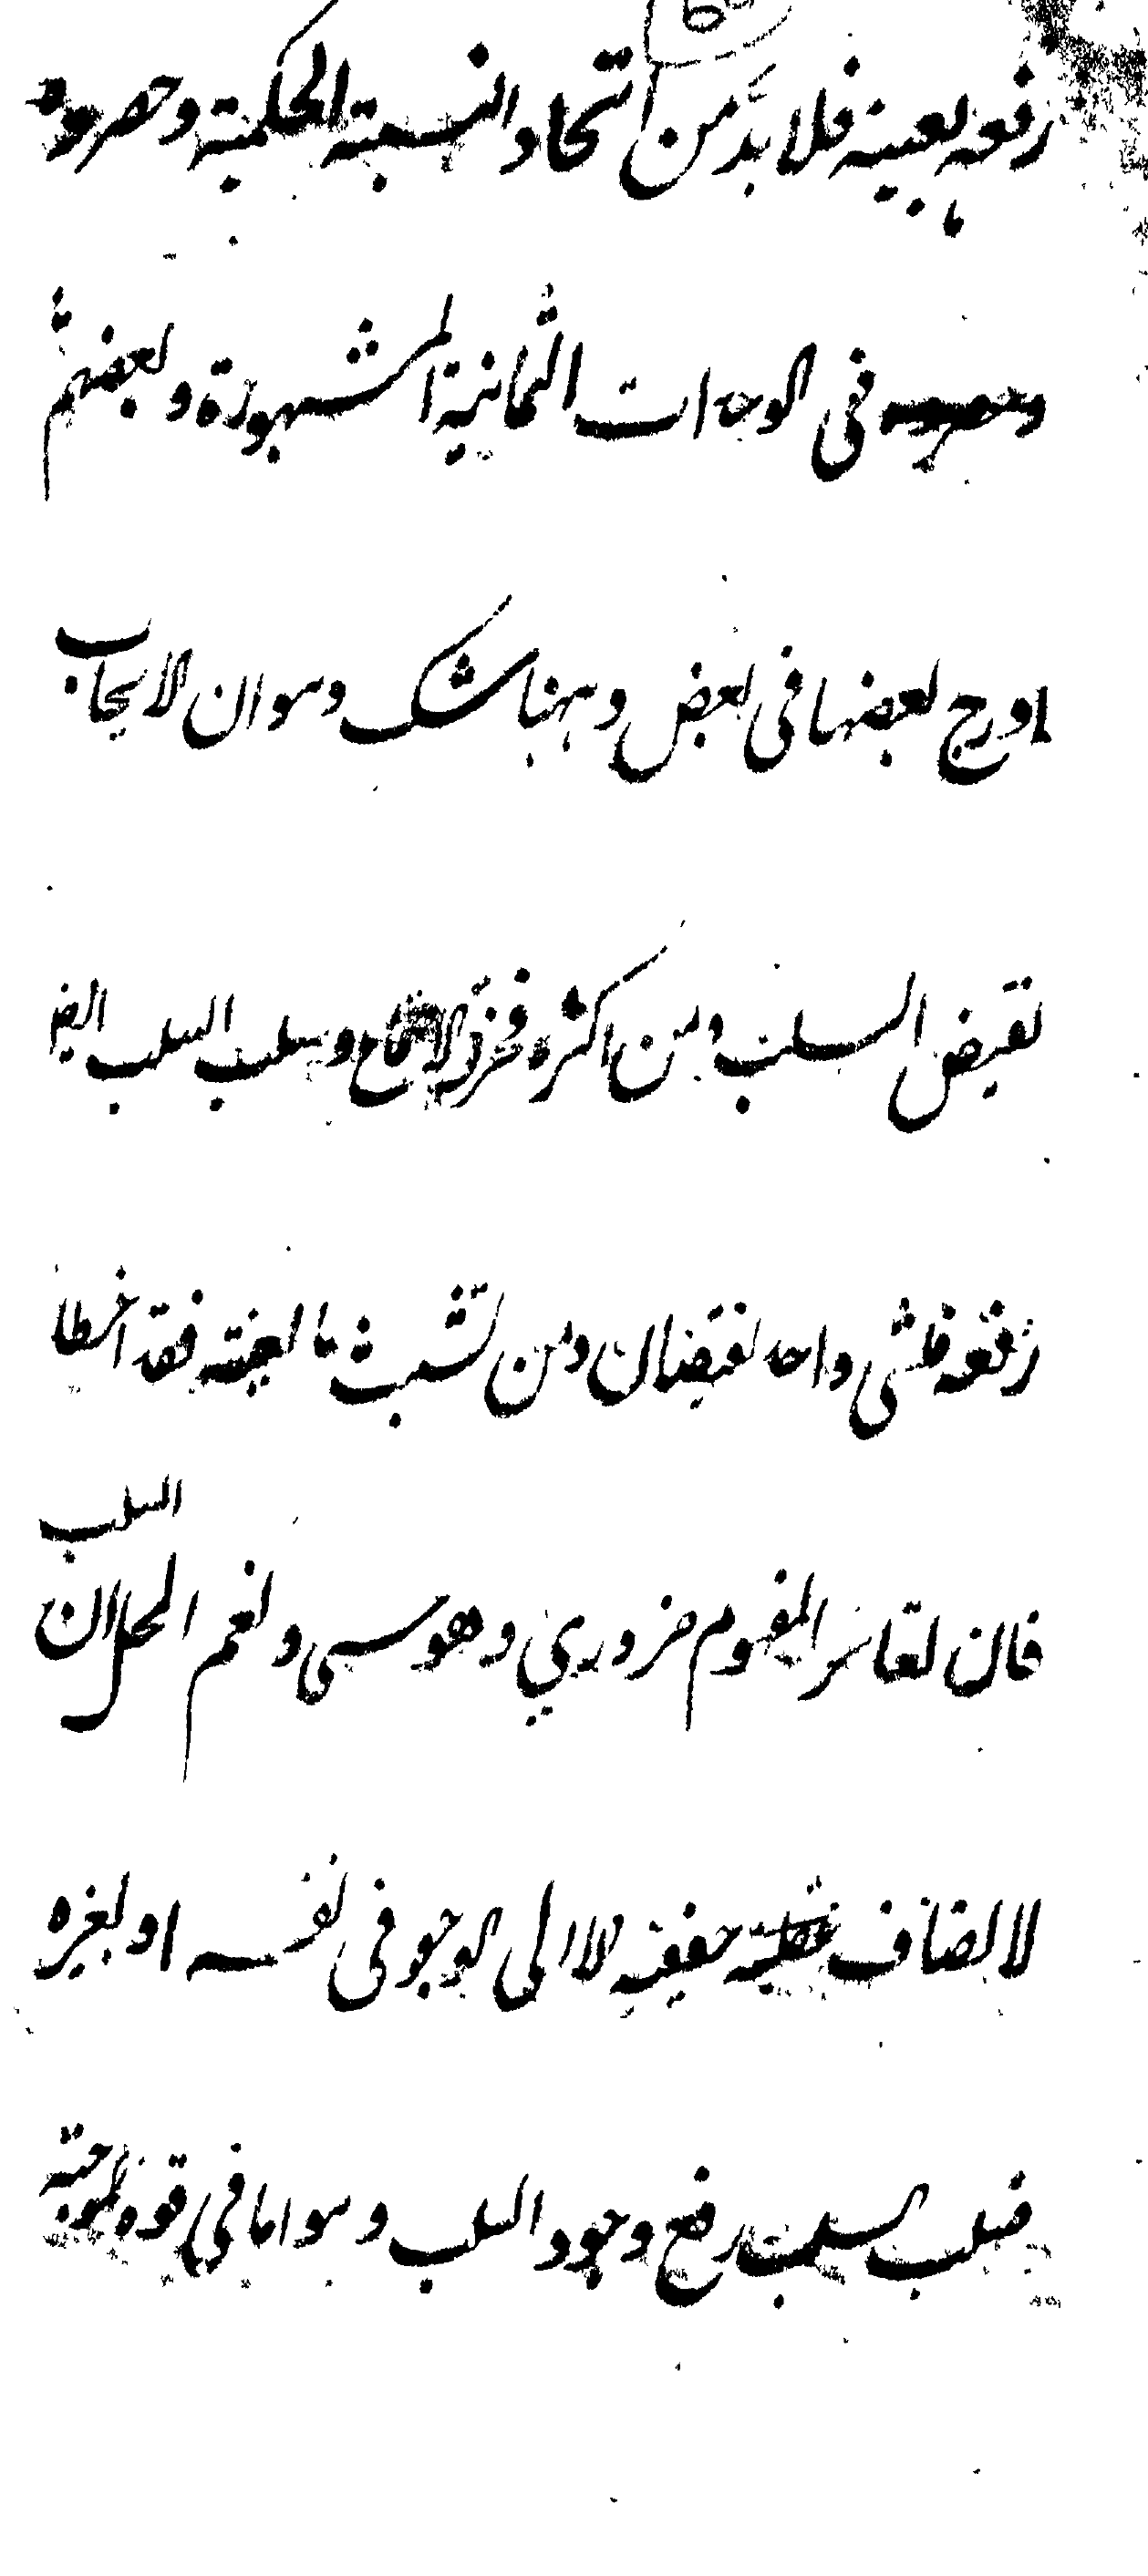 رفعه بعينه فلا بدّ من اتحاد النسبة الحكمية وحصروه
فى الوحدات الثمانية المشهورة وبعضهم
ادرج بعضها فى بعض وههنا شك وهو ان الايجاب
نقيض السلب ومن اكثره فخرق الاجماع وسلب السلب ايضا
رفعه فلشى واحد نقيضان ومن تشبث بالعينية فقد اخطا
فان تغاير المفهوم ضروري وهو سى ونعم الحل ان السلب
لا يضاف حقيقة الا الى الوجود فى نفسه او لغيره
فسلب السلب رفع وجود السلب وهو اما فى قوة الموجبة